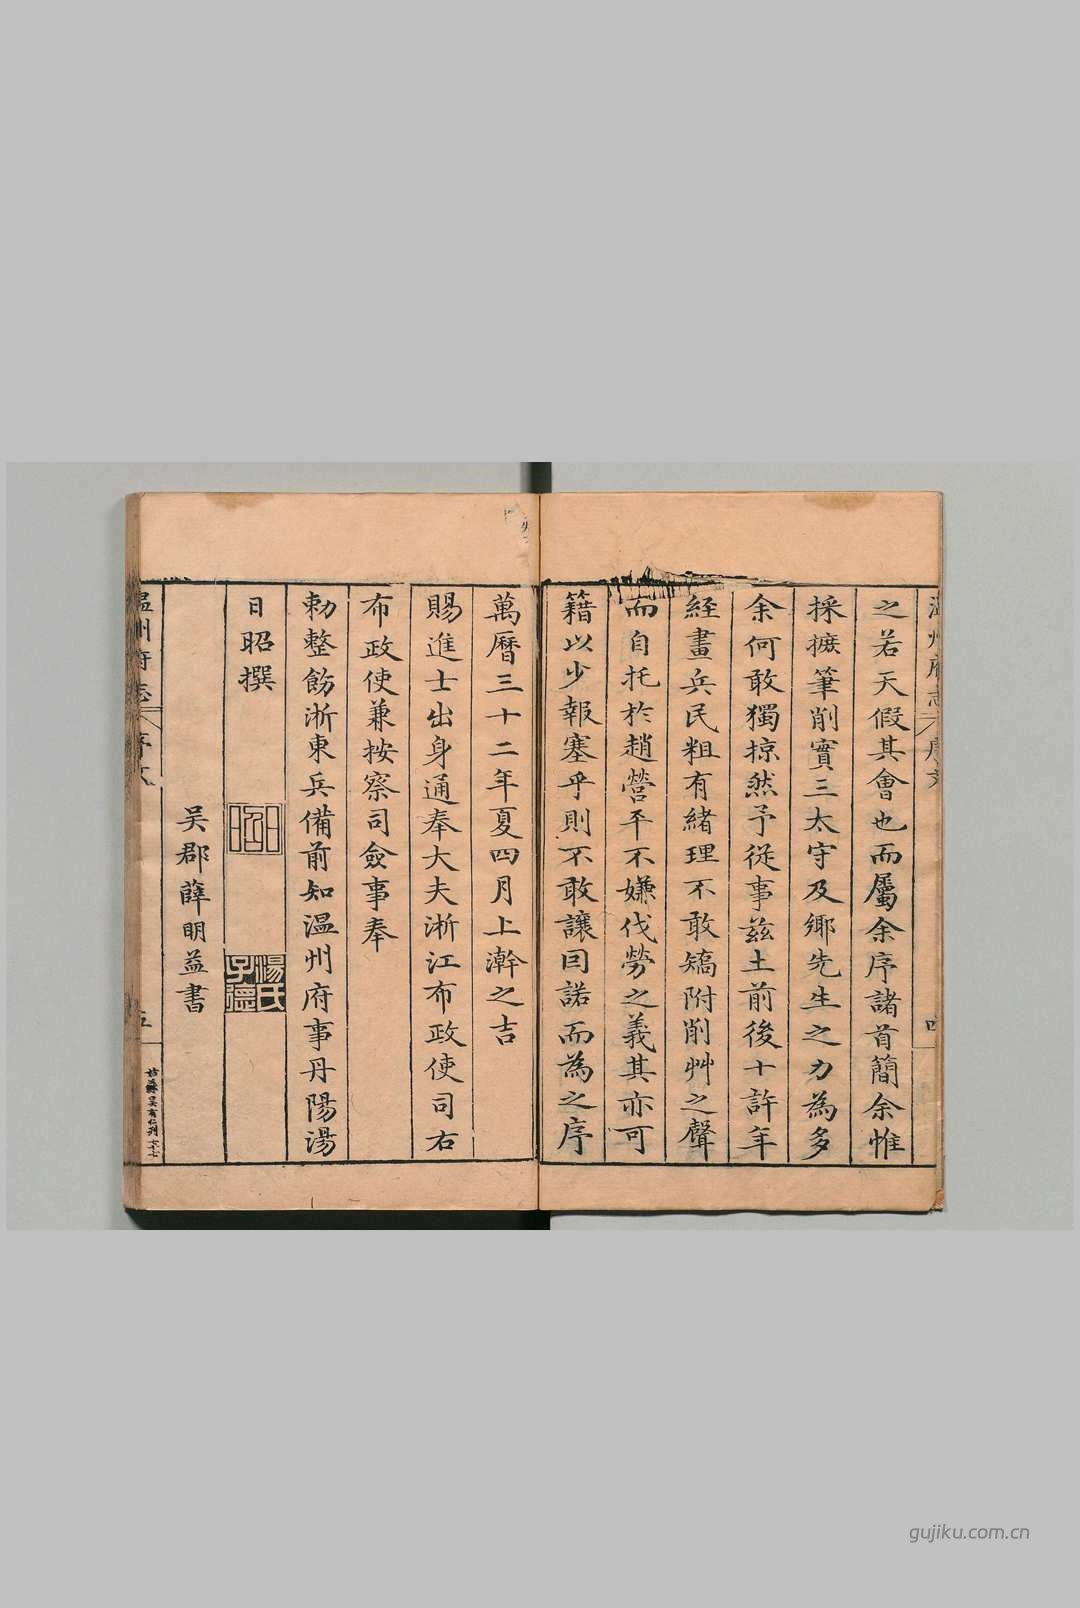 溫州府志 序文 四
之若天假其會也而屬余序諸首簡余惟
採摭筆削實三太守及鄉先生之力為多
余何敢獨掠然予從事茲土前後十許年
經畫兵民粗有緒理不敢矯附削艸之聲
而自托於趙營平不嫌伐勞之義其亦可
籍以少報塞乎則不敢讓曰諾而為之序
萬曆三十二年夏四月上澣之吉
賜進士出身通奉大夫浙江布政使司右
布政使兼按察司僉事奉
勅整飭浙東兵備前知溫州府事丹陽湯
日昭撰
湯氏子德
吳郡薛明益書
溫州府志 序文 五
gujiku.com.cn